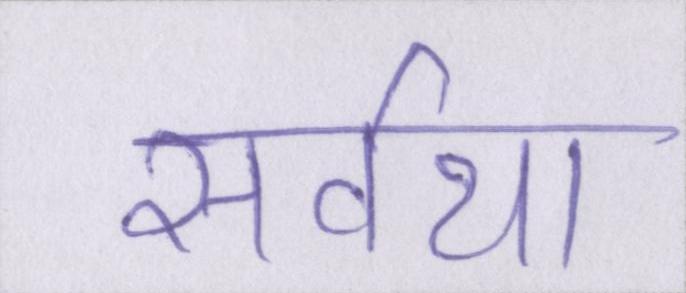 सर्वथा